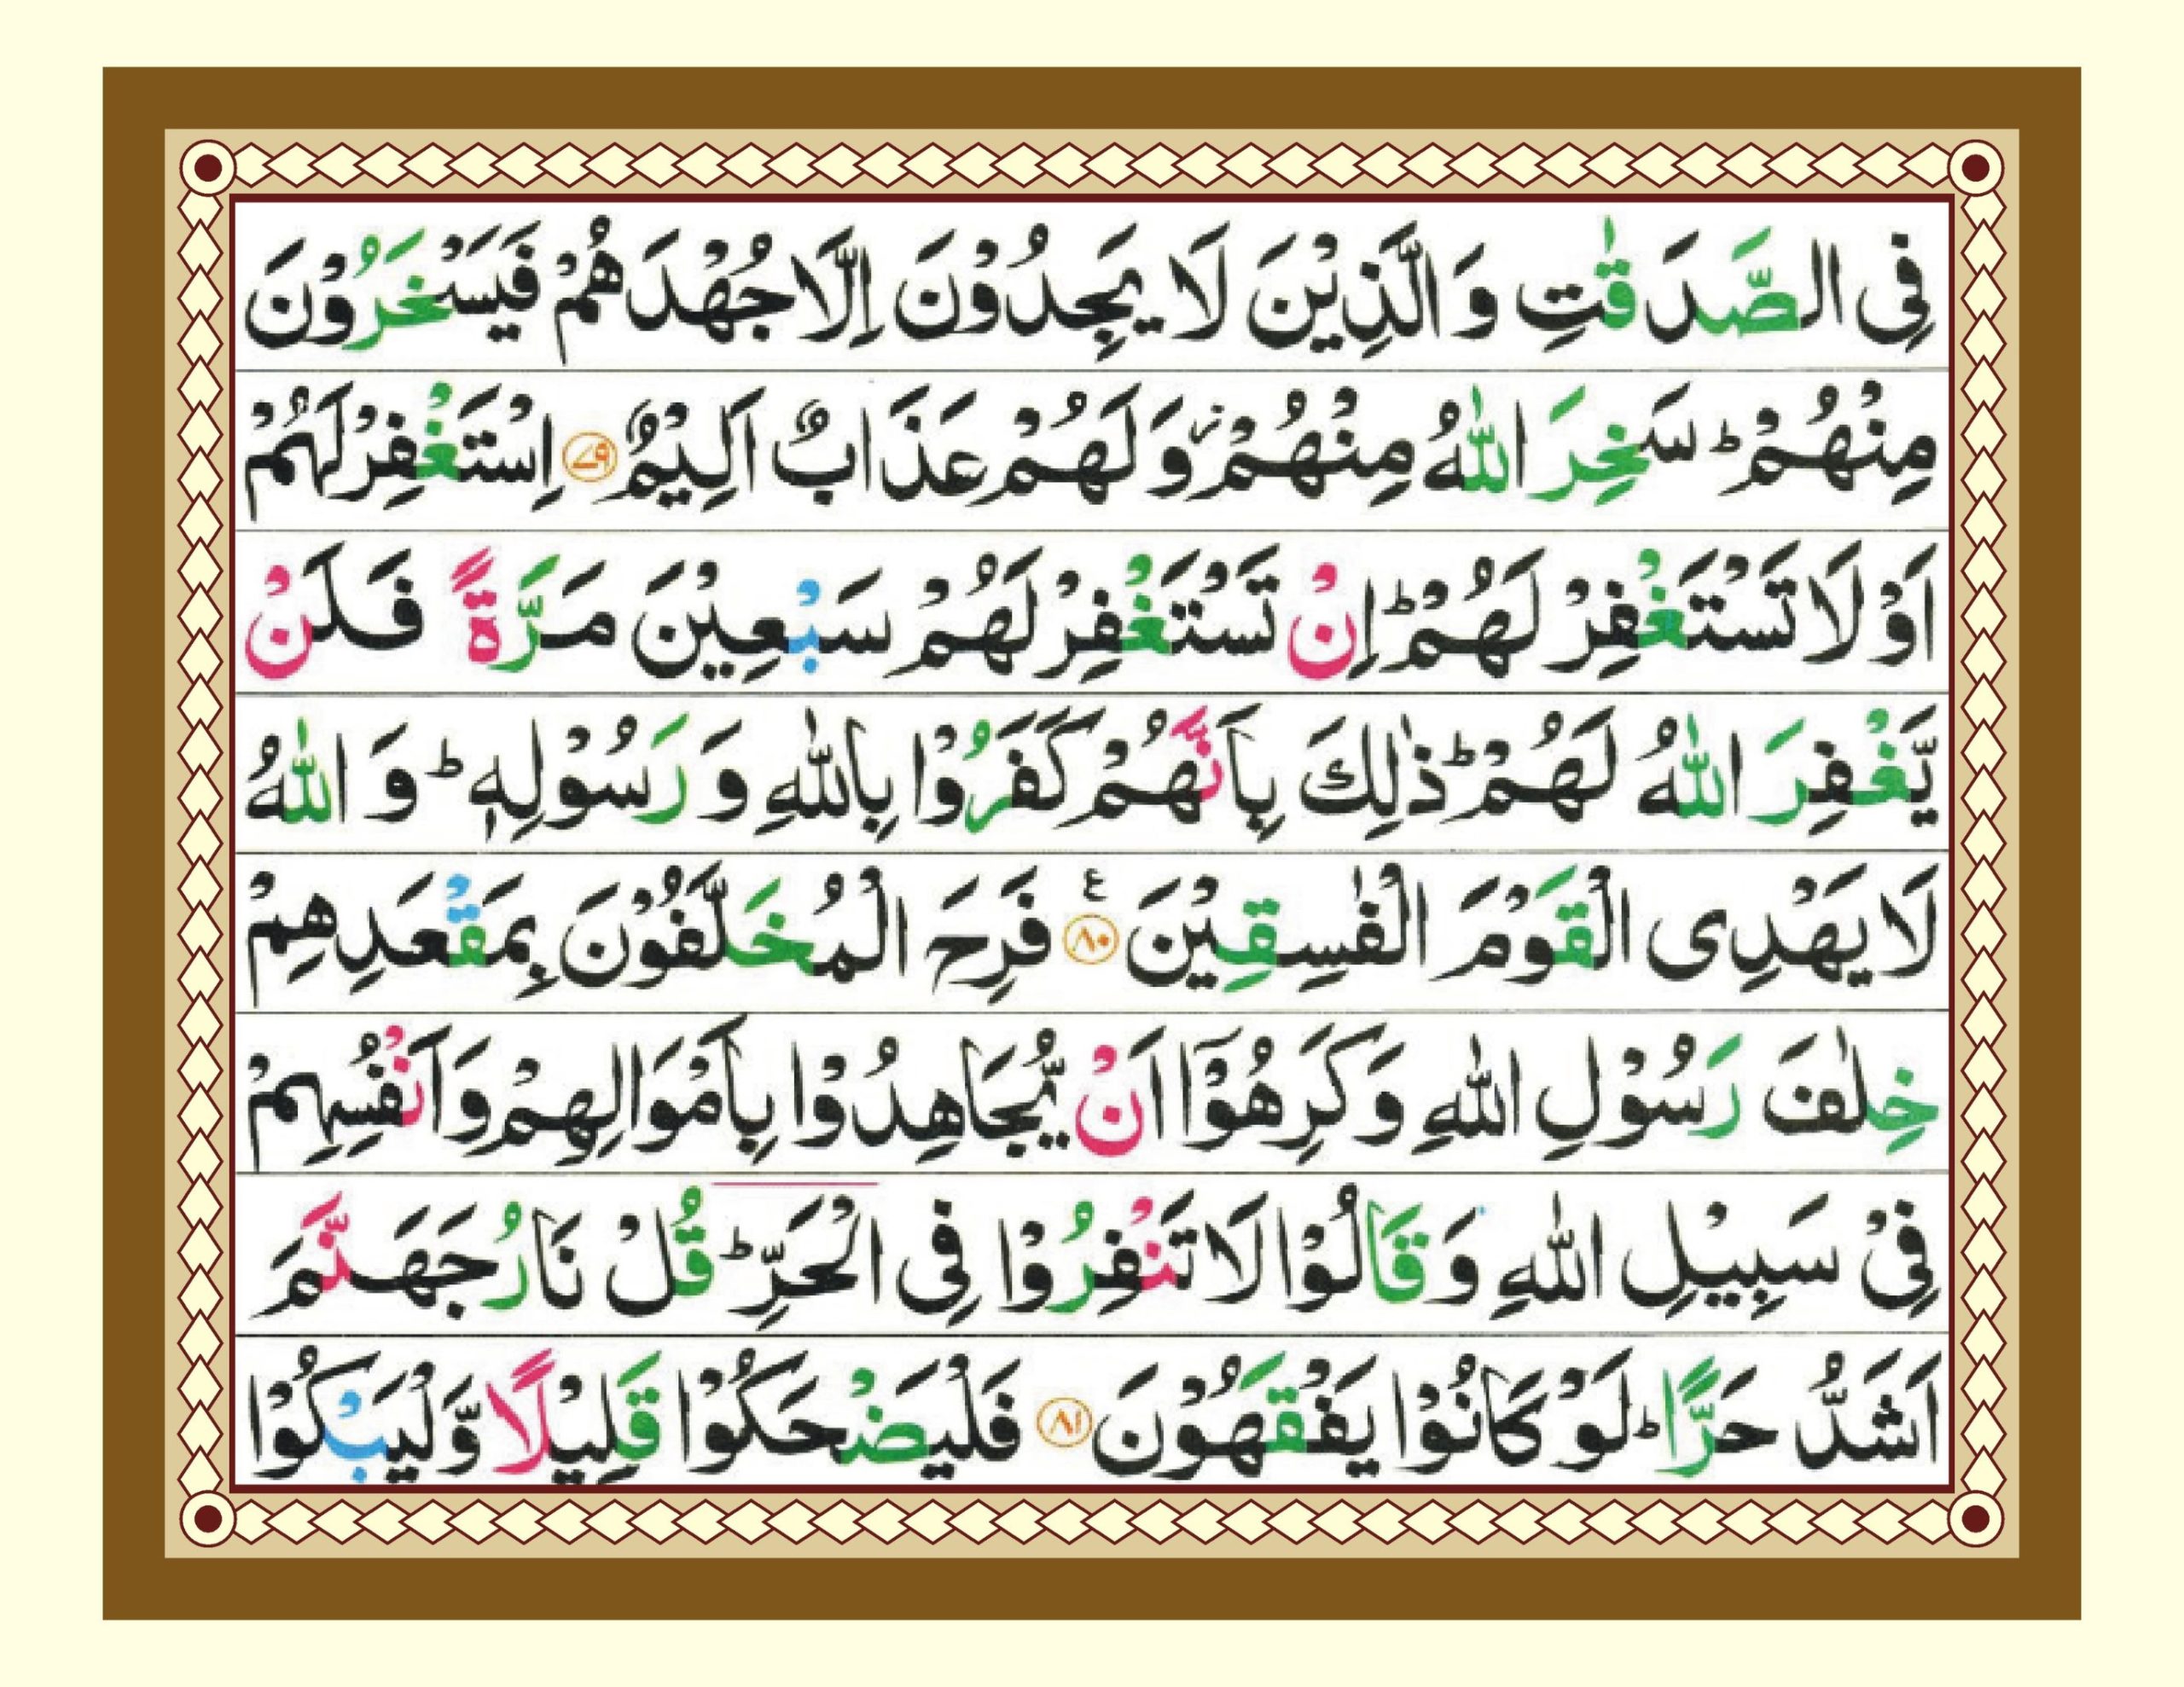 فِی الصَّدَقٰتِ وَ الَّذِیْنَ لَا یَجِدُوْنَ اِلَّا جُهْدَهُمْ فَیَسْخَرُوْنَ
مِنْهُمْ ؕ سَخِرَ اللّٰهُ مِنْهُمْ ؗ وَ لَهُمْ عَذَابٌ اَلِیْمٌ ﴿۷۹﴾ اِسْتَغْفِرْ لَهُمْ
اَوْ لَا تَسْتَغْفِرْ لَهُمْ ؕ اِنْ تَسْتَغْفِرْ لَهُمْ سَبْعِیْنَ مَرَّةً فَلَنْ
یَّغْفِرَ اللّٰهُ لَهُمْ ؕ ذٰلِكَ بِاَنَّهُمْ كَفَرُوْا بِاللّٰهِ وَ رَسُوْلِهٖ ؕ وَ اللّٰهُ
لَا یَهْدِی الْقَوْمَ الْفٰسِقِیْنَ ﴿۸۰﴾ ع فَرِحَ الْمُخَلَّفُوْنَ بِمَقْعَدِهِمْ
خِلٰفَ رَسُوْلِ اللّٰهِ وَ كَرِهُوْۤا اَنْ یُّجَاهِدُوْا بِاَمْوَالِهِمْ وَ اَنْفُسِهِمْ
فِیْ سَبِیْلِ اللّٰهِ وَ قَالُوْا لَا تَنْفِرُوْا فِی الْحَرِّ ؕ قُلْ نَارُ جَهَنَّمَ
اَشَدُّ حَرًّا ؕ لَوْ كَانُوْا یَفْقَهُوْنَ ﴿۸۱﴾ فَلْیَضْحَكُوْا قَلِیْلًا وَّ لْیَبْكُوْا